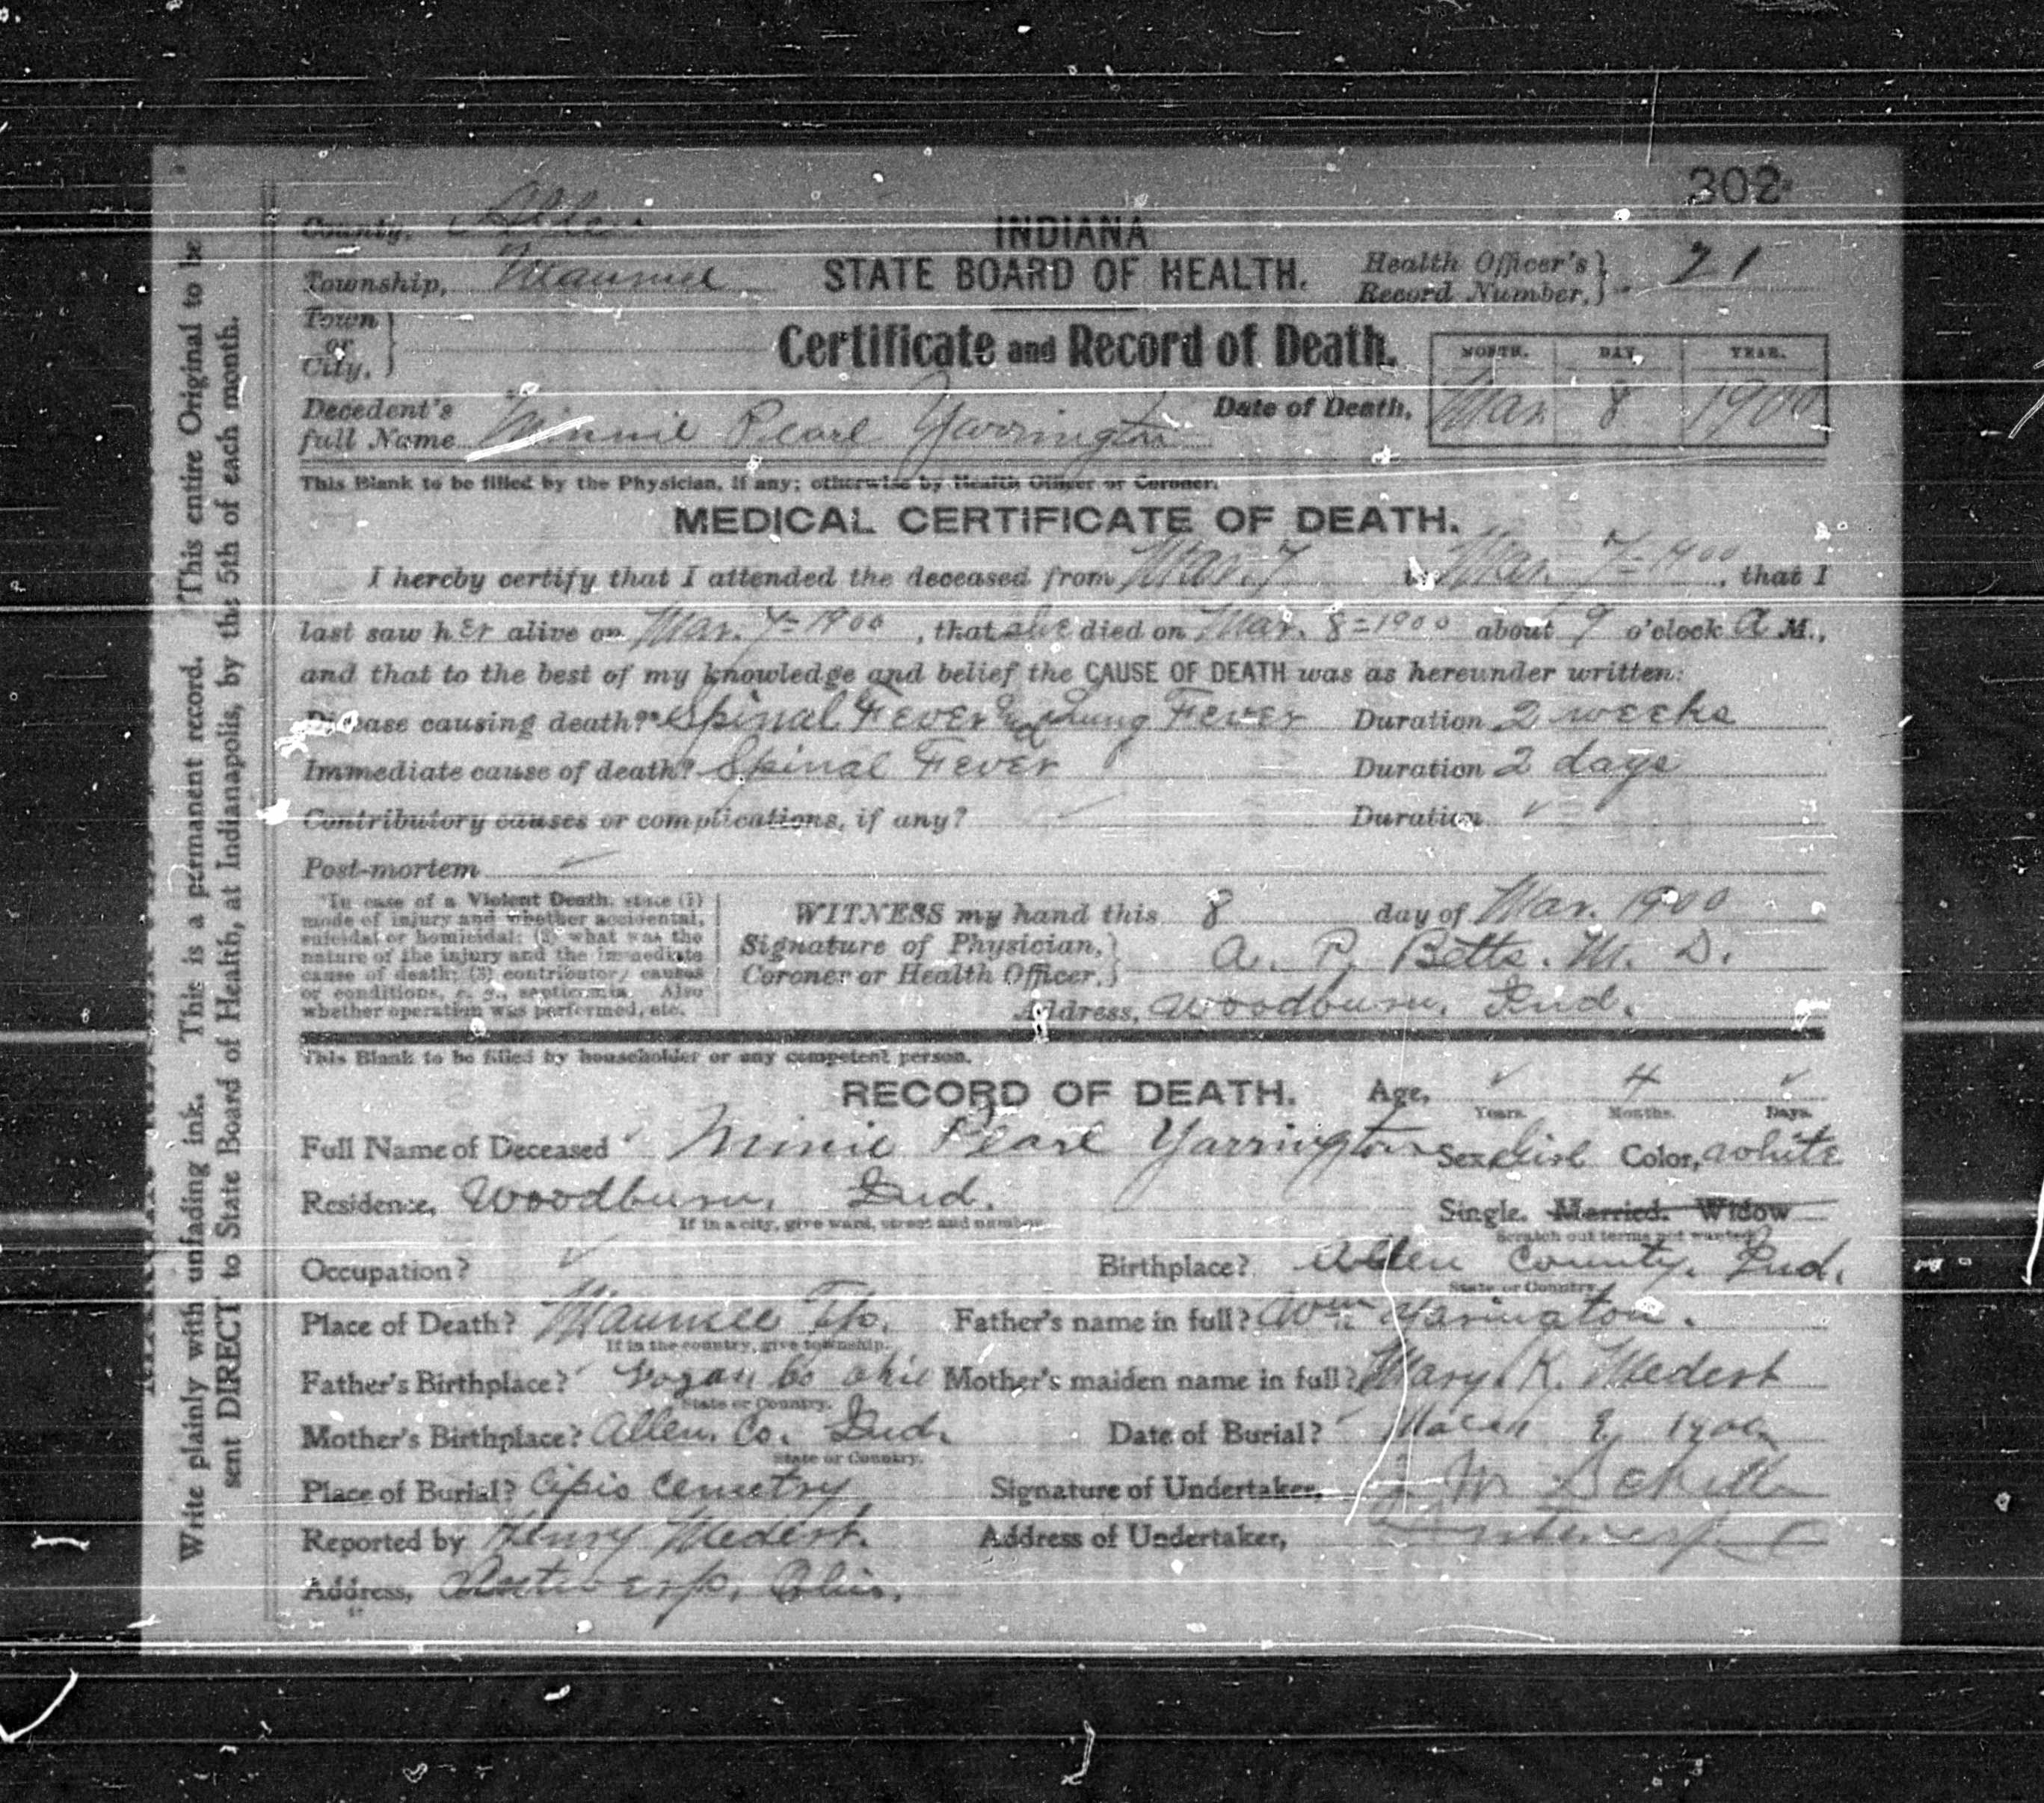 302
County, Allen
INDIANA
Township, Maumee
STATE BOARD OF HEALTH.
Health Officer's Record Number, 21
Town or City,
Certificate and Record of Death.
MONTH. DAY. YEAR.
Decedent's full Name Minnie Pearl Yarrington
Date of Death, Mar. 8 1900
This Blank to be filled by the Physician, if any; otherwise by Health Officer or Coroner.
MEDICAL CERTIFICATE OF DEATH.
I hereby certify that I attended the deceased from Mar. 7 to Mar. 7 - 1900, that I
last saw her alive on Mar. 7 - 1900, that she died on Mar. 8 = 1900 about 9 o'clock A M.,
and that to the best of my knowledge and belief the CAUSE OF DEATH was as hereunder written:
Disease causing death?* Spinal Fever and Lung Fever Duration 2 weeks
Immediate cause of death? Spinal Fever Duration 2 days
Contributory causes or complications, if any? ✓ Duration ✓
Post-mortem ✓
*In case of a Violent Death, state (1)
mode of injury and whether accidental,
suicidal or homicidal; (2) what was the
nature of the injury and the immediate
cause of death; (3) contributory causes
or conditions, e. g., septicemia. Also
whether operation was performed, etc.
WITNESS my hand this 8 day of Mar. 1900
Signature of Physician, Coroner or Health Officer, A. P. Betts. M. D.
Address, Woodburn, Ind.
This Blank to be filled by householder or any competent person.
RECORD OF DEATH.
Age, ✓ Years. 4 Months. ✓ Days.
Full Name of Deceased Minie Pearl Yarrington Sex, Girl Color, White
Residence, Woodburn, Ind. Single. Married. Widow
If in a city, give ward, street and number.
Scratch out terms not wanted.
Occupation? ✓ Birthplace? Allen County. Ind.
State or Country.
Place of Death? Maumee Tp. Father's name in full? Wm Yarington.
If in the country, give township.
Father's Birthplace? Logan Co Ohio Mother's maiden name in full? Mary. K. Medert
State or Country.
Mother's Birthplace? Allen. Co. Ind. Date of Burial? March 1900
State or Country.
Place of Burial? Cipio Cemetry Signature of Undertaker,
Reported by Henry Medert. Address of Undertaker, Antwerp
Address, Antwerp, Ohio.
Write plainly with unfading ink. This is a permanent record. This entire Original to be
sent DIRECT to State Board of Health, at Indianapolis, by the 5th of each month.